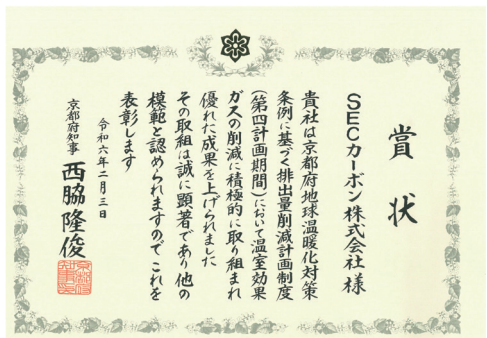 賞状
SECカーボン株式会社様
貴社は京都府地球温暖化対策
条例に基づく排出量削減計画制度
(第四計画期間)において温室効果
ガスの削減に積極的に取り組まれ
優れた成果を上げられました
その取組は誠に顕著であり他の
模範と認められますのでこれを
表彰します
令和六年二月三日
京都府知事 西脇隆俊